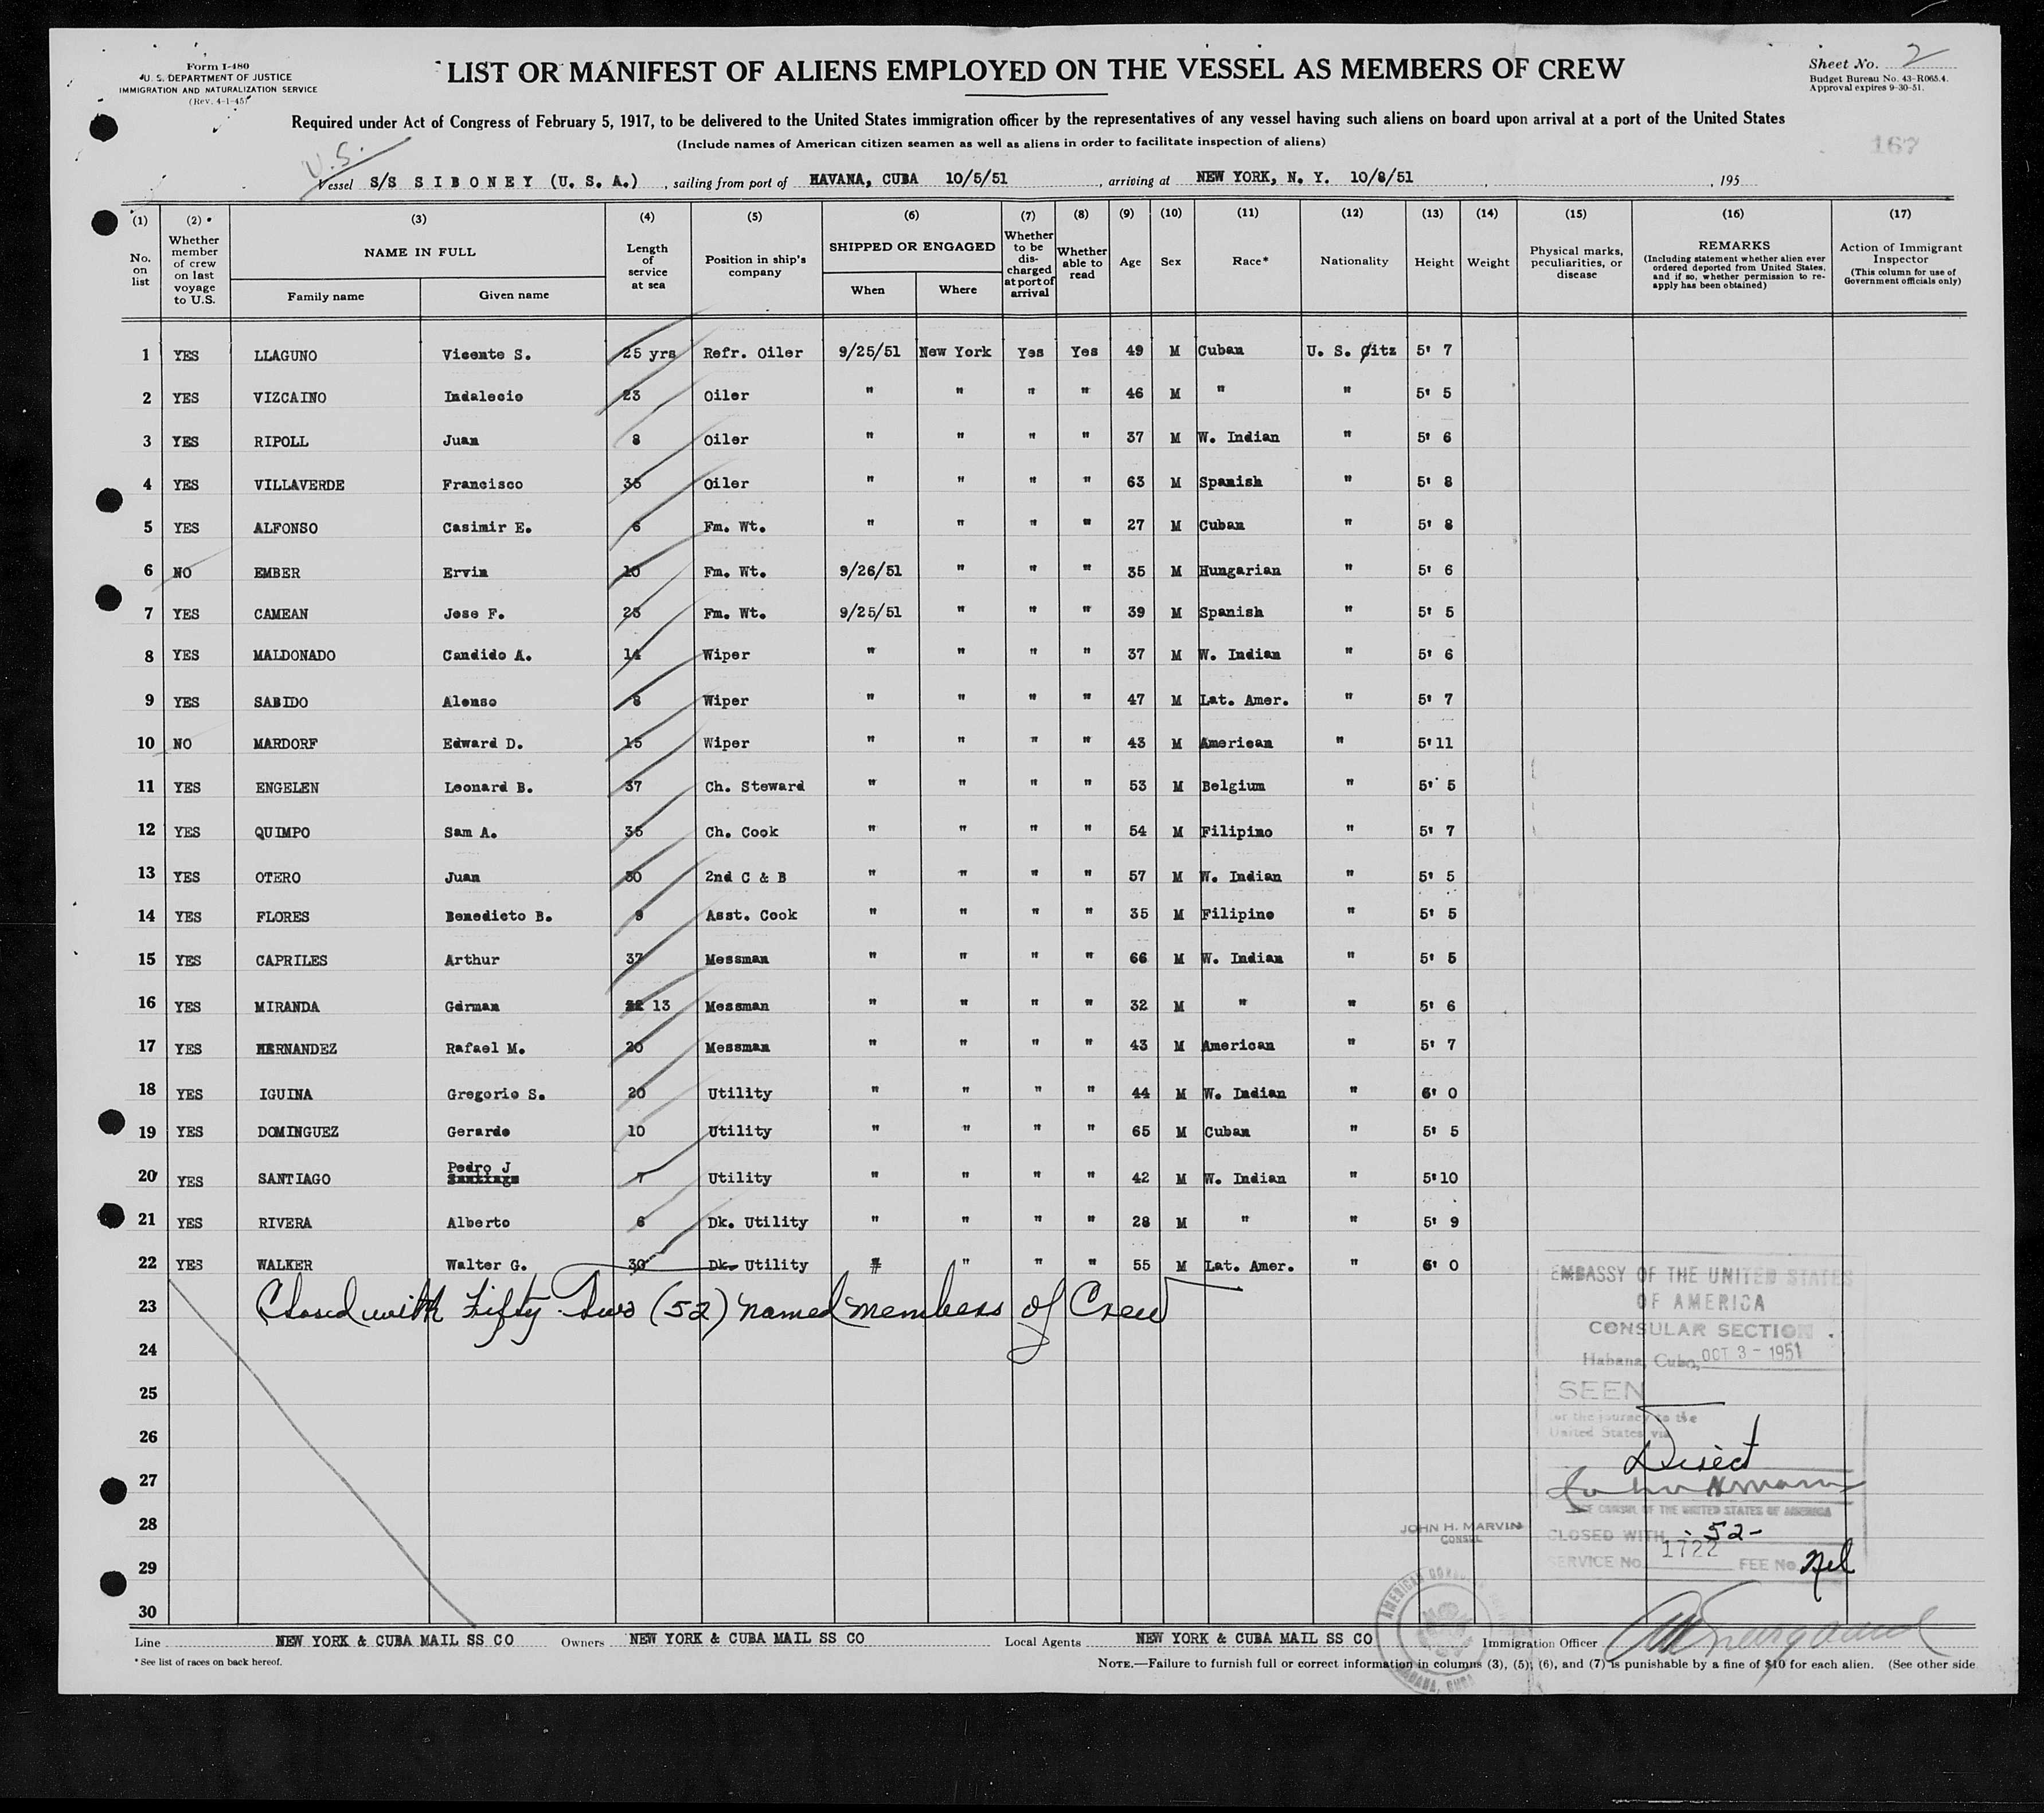 Form I-480
U. S. DEPARTMENT OF JUSTICE
IMMIGRATION AND NATURALIZATION SERVICE
(Rev. 4-1-45)
LIST OR MANIFEST OF ALIENS EMPLOYED ON THE VESSEL AS MEMBERS OF CREW
Sheet No. 2
Budget Bureau No. 43-R065.4.
Approval expires 9-30-51.
Required under Act of Congress of February 5, 1917, to be delivered to the United States immigration officer by the representatives of any vessel having such aliens on board upon arrival at a port of the United States
(Include names of American citizen seamen as well as aliens in order to facilitate inspection of aliens)
167
U.S.
Vessel S/S SIBONEY (U. S. A.), sailing from port of HAVANA, CUBA 10/5/51, arriving at NEW YORK, N. Y. 10/8/51, 195
(1) (2) (3) (4) (5) (6) (7) (8) (9) (10) (11) (12) (13) (14) (15) (16) (17)
No. on list
Whether member of crew on last voyage to U.S.
NAME IN FULL
Family name
Given name
Length of service at sea
Position in ship's company
SHIPPED OR ENGAGED
When
Where
Whether to be discharged at port of arrival
Whether able to read
Age
Sex
Race*
Nationality
Height
Weight
Physical marks, peculiarities, or disease
REMARKS
(Including statement whether alien ever ordered deported from United States, and if so, whether permission to reapply has been obtained)
Action of Immigrant Inspector
(This column for use of Government officials only)
1 YES LLAGUNO Vicente S. 25 yrs Refr. Oiler 9/25/51 New York Yes Yes 49 M Cuban U. S. Citz 5' 7
2 YES VIZCAINO Indalecio 23 Oiler " " " " 46 M " " 5' 5
3 YES RIPOLL Juan 8 Oiler " " " " 37 M W. Indian " 5' 6
4 YES VILLAVERDE Francisco 35 Oiler " " " " 63 M Spanish " 5' 8
5 YES ALFONSO Casimir E. 6 Fm. Wt. " " " " 27 M Cuban " 5' 8
6 NO EMBER Ervin 10 Fm. Wt. 9/26/51 " " " 35 M Hungarian " 5' 6
7 YES CAMEAN Jose F. 23 Fm. Wt. 9/25/51 " " " 39 M Spanish " 5' 5
8 YES MALDONADO Candido A. 14 Wiper " " " " 37 M W. Indian " 5' 6
9 YES SABIDO Alonso 8 Wiper " " " " 47 M Lat. Amer. " 5' 7
10 NO MARDORF Edward D. 15 Wiper " " " " 43 M American " 5'11
11 YES ENGELEN Leonard B. 37 Ch. Steward " " " " 53 M Belgium " 5' 5
12 YES QUIMPO Sam A. 35 Ch. Cook " " " " 54 M Filipino " 5' 7
13 YES OTERO Juan 30 2nd C & B " " " " 57 M W. Indian " 5' 5
14 YES FLORES Benedicto B. 9 Asst. Cook " " " " 35 M Filipino " 5' 5
15 YES CAPRILES Arthur 37 Messman " " " " 66 M W. Indian " 5' 5
16 YES MIRANDA German 13 Messman " " " " 32 M " " 5' 6
17 YES HERNANDEZ Rafael M. 20 Messman " " " " 43 M American " 5' 7
18 YES IGUINA Gregorio S. 20 Utility " " " " 44 M W. Indian " 6' 0
19 YES DOMINGUEZ Gerardo 10 Utility " " " " 65 M Cuban " 5' 5
20 YES SANTIAGO Pedro J Santiago 7 Utility " " " " 42 M W. Indian " 5'10
21 YES RIVERA Alberto 6 Dk. Utility " " " " 28 M " " 5' 9
22 YES WALKER Walter G. 30 Dk. Utility " " " " 55 M Lat. Amer. " 6' 0
23 Closed with Fifty Two (52) named members of Crew
24
25
26
27
28
29
30
EMBASSY OF THE UNITED STATES
OF AMERICA
CONSULAR SECTION
Habana, Cuba, OCT 3 - 1951
SEEN
for the journey to the
United States via
Direct
CONSUL OF THE UNITED STATES OF AMERICA
JOHN H. MARVIN
CONSUL
CLOSED WITH - 52 -
SERVICE No. 1722 FEE No. Nil
AMERICAN
HABANA, CUBA
Line NEW YORK & CUBA MAIL SS CO Owners NEW YORK & CUBA MAIL SS CO Local Agents NEW YORK & CUBA MAIL SS CO Immigration Officer
*See list of races on back hereof.
NOTE.—Failure to furnish full or correct information in columns (3), (5), (6), and (7) is punishable by a fine of $10 for each alien. (See other side